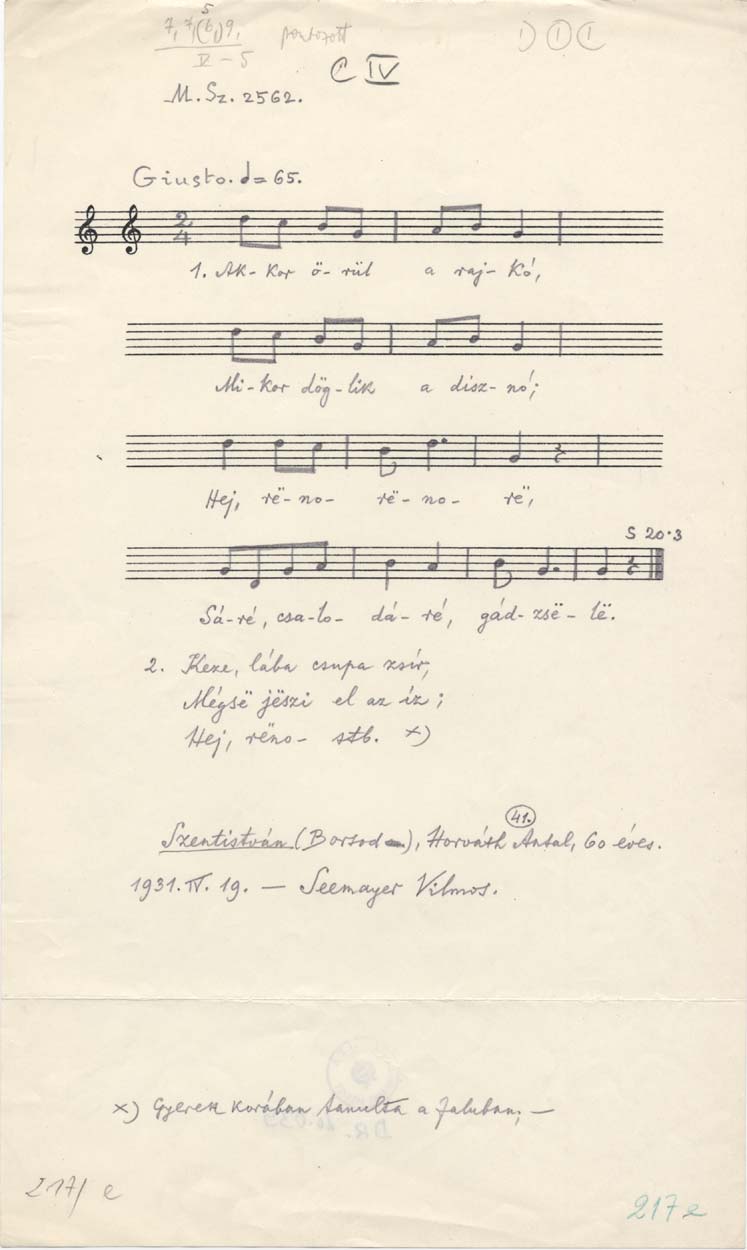 7, 7, (6,) 9,
5
V - 5
pontozott
C IV
M. Sz. 2562.
Giusto. = 65.
2
4
1. Ak- kor ö- rül a raj- kó,
Mi- kor dög- lik a disz- nó;
Hej, rë- no- rë- no- rë,
S 20·3
Sá-ré, csa-lo- dá- ré, gád- zsë- lë.
2. Keze, lába csupa zsír,
Mégsë jëszi el az íz;
Hej, rëno- stb. x)
41.
Szentistván (Borsod), Horváth Antal, 60 éves.
1931. IV. 19. — Seemayer Vilmos.
x) Gyerek korában tanulta a faluban; —
217/ e
217 e